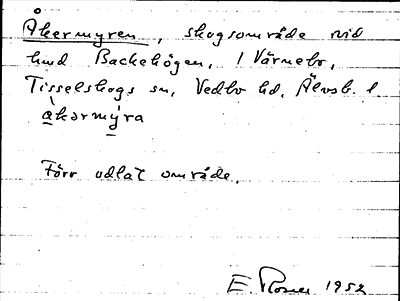 Åkermyren, skogsområde vid
hmd Backehögen, 1 Värnebo,
Tisselskogs sn, Vedbo hd, Älvsb. l.
åkərmýra
Förr odlat område.
E. 1952